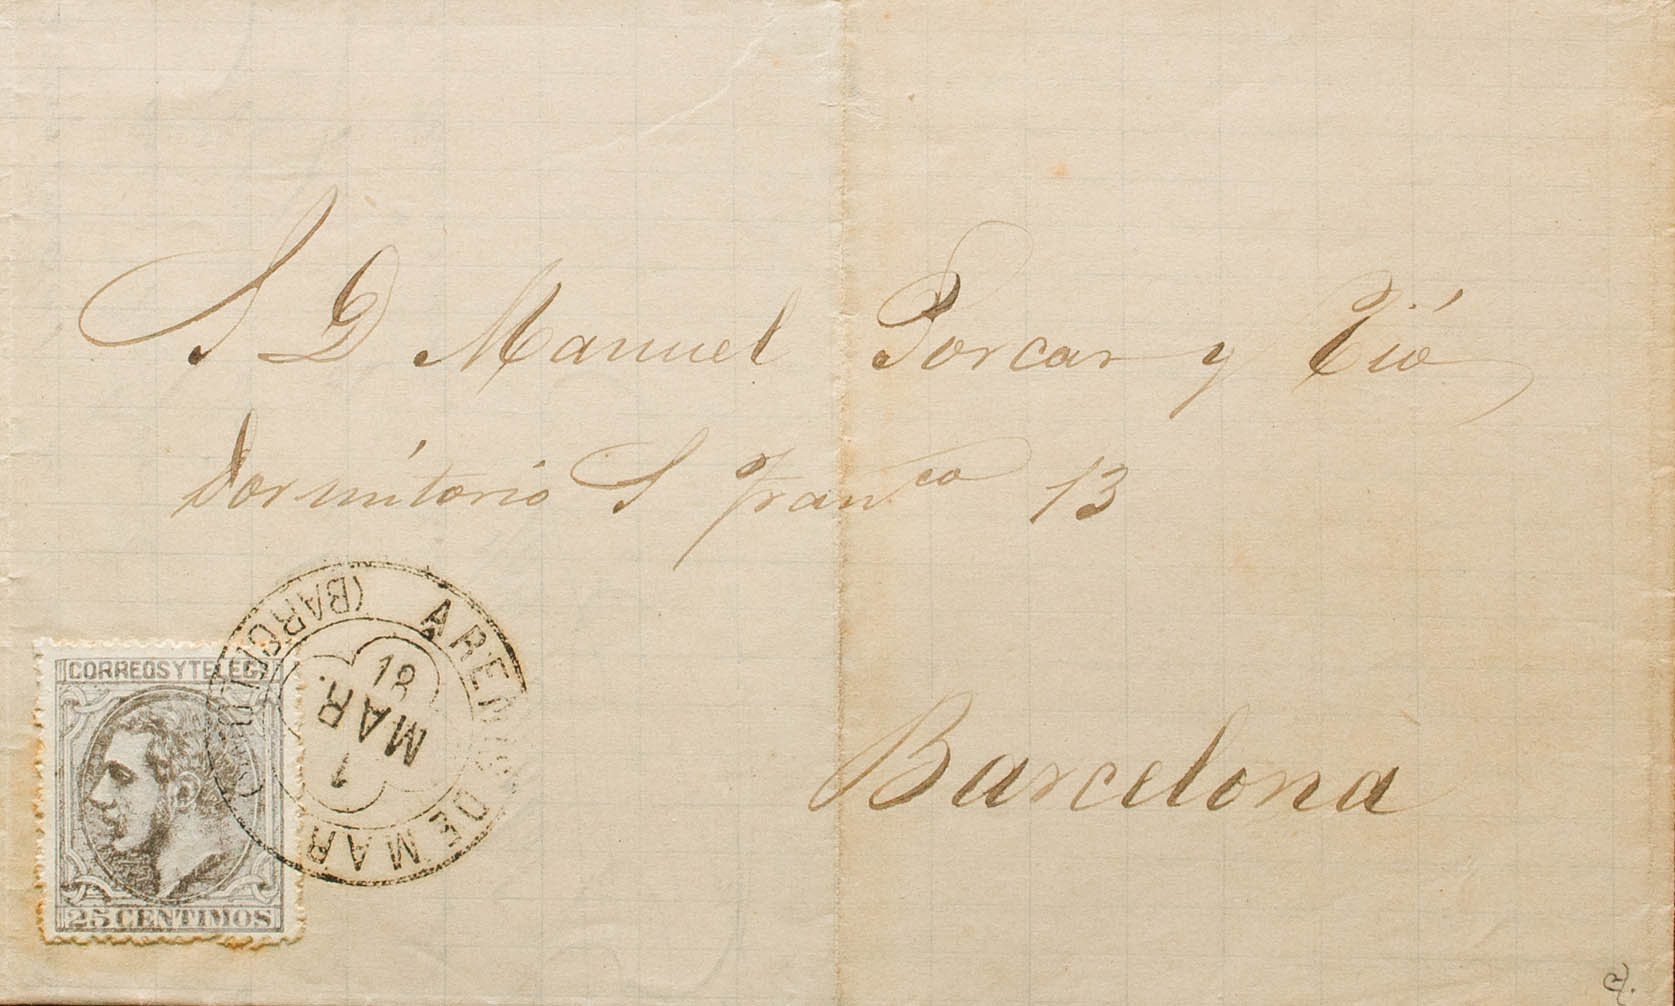 S D Manuel Porcar y Tió
Dormitorio S Franco 13
Barcelona
CORREOS Y TELEG
25 CENTIMOS
ARENYS DE MAR
(BARCELONA)
18
MAR.
MAR
1